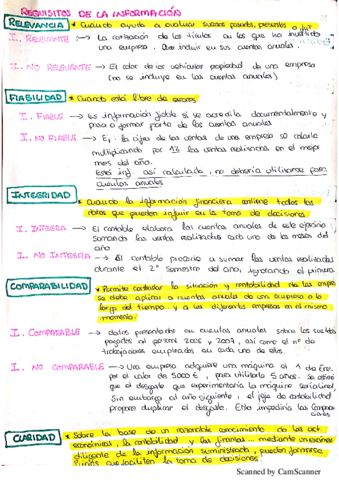 REQUISITOS DE LA INFORMACIÓN
RELEVANCIA * Cuando ayuda a evaluar sucesos pasados, presentes o
I. RELEVANTE → La cotización de los títulos en los que ha invertido
una empresa. Debe incluir en sus cuentas anuales
I. NO RELEVANTE → El color de los vehículos propiedad de una empresa
(no se incluye en las cuentas anuales)
FIABILIDAD * Cuando está libre de errores
I. FIABLE → Es información fiable si se acredita documentalmente y
pasa a formar parte de las cuentas anuales
I. NO FIABLE → Ej: la cifra de las ventas de una empresa se calcule
multiplicando por 12 las ventas realizadas en el mejor
mes del año.
Esta inf. así calculada, no debería utilizarse para
cuentas anuales
INTEGRIDAD * Cuando la información financiera contiene todos los
datos que pueden influir en la toma de decisiones.
I. INTEGRA → El contable elabora las cuentas anuales de este ejercicio
sumando las ventas realizadas cada uno de los meses del
año
I. NO INTEGRA → El contable procede a sumar las ventas realizadas
durante el 2º semestre del año, ignorando el primero
COMPARABILIDAD * Permite contrastar la situación y rentabilidad de las empresas
Se debe aplicar a cuentas anuales de una empresa a lo
largo del tiempo y a las diferentes empresas en el mismo
momento.
I. COMPARABLE → datos presentados en cuentas anuales sobre los sueldos
pagados al personal 2006 y 2007, así como el nº de
trabajadores empleados en cada uno de ellos.
I. NO COMPARABLE → Una empresa adquiere una máquina al 1 de Ene.
por el valor de 5000 €, para utilizarla 5 años. Se estima
que el desgaste que experimentaría la máquina sería lineal,
Sin embargo al año siguiente, el jefe de contabilidad
propone duplicar el desgaste. Esto impediría las comparaciones
CLARIDAD * Sobre la base de un razonable conocimiento de las act.
económicas, la contabilidad y las finanzas mediante un examen
diligente de la información suministrada, puedan formarse
juicios que faciliten la toma de decisiones
Scanned by CamScanner